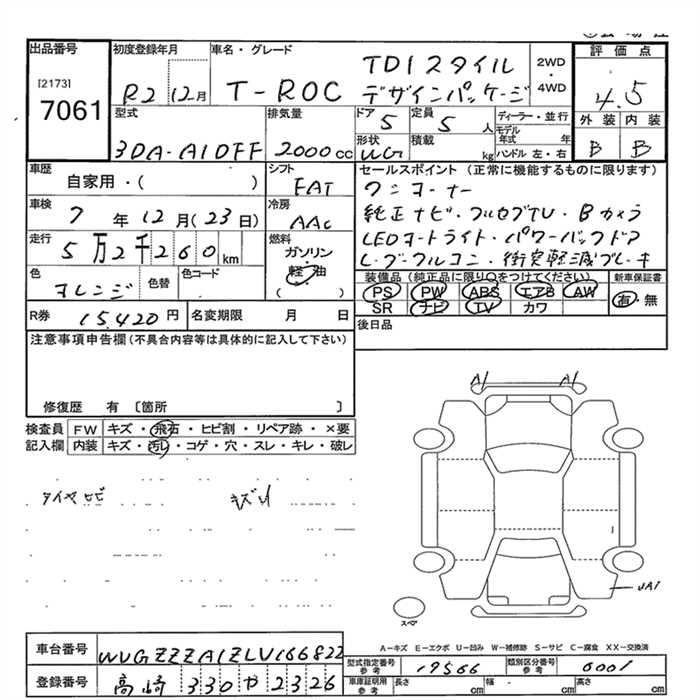 出品番号 初度登録年月 車名・グレード 評価点
[2173]
7061
R2 12月 T-ROC TDIスタイル
デザインパッケージ
2WD
・
4WD
4.5
外装 内装
B B
型式 排気量 ドア 定員 ディーラー・並行
3DA-A1DFF 2000cc 5 5人 モデル年式 年
形状 積載 ハンドル 左・右
WG kg
車歴 シフト セールスポイント(正常に機能するものに限ります)
自家用・( ) FAT ワンオーナー
車検 冷房
7年12月(23日) AAC 純正ナビ・フルセグTV・Bカメラ
走行 燃料 LEDオートライト・パワーバックドア
5万2千260km ガソリン
軽油
( )
レーダークルコン・衝突軽減ブレーキ
色 色替 色コード 装備品(純正品に限り○をつけてください) 新車保証書
オレンジ PS PW ABS エアB AW 有・無
SR ナビ TV カワ
R券 15,420円 名変期限 月 日 後日品
注意事項申告欄(不具合内容等は具体的に記入して下さい)
修復歴 有 〔箇所 〕
検査員 FW キズ・飛石・ヒビ割・リペア跡・×要
記入欄 内装 キズ・汚レ・コゲ・穴・スレ・キレ・破レ
A1 A1
タイヤヒビ キズ
UA1
スペア
A-キズ E-エクボ U-凹み W-補修跡 S-サビ C-腐食 XX-交換済
車台番号 WVGZZZA1ZLV166822
型式指定番号 参考 19566 類別区分番号 参考 0001
登録番号 高崎 330や2326
車庫証明用 参考 長さ cm 幅 cm 高さ cm